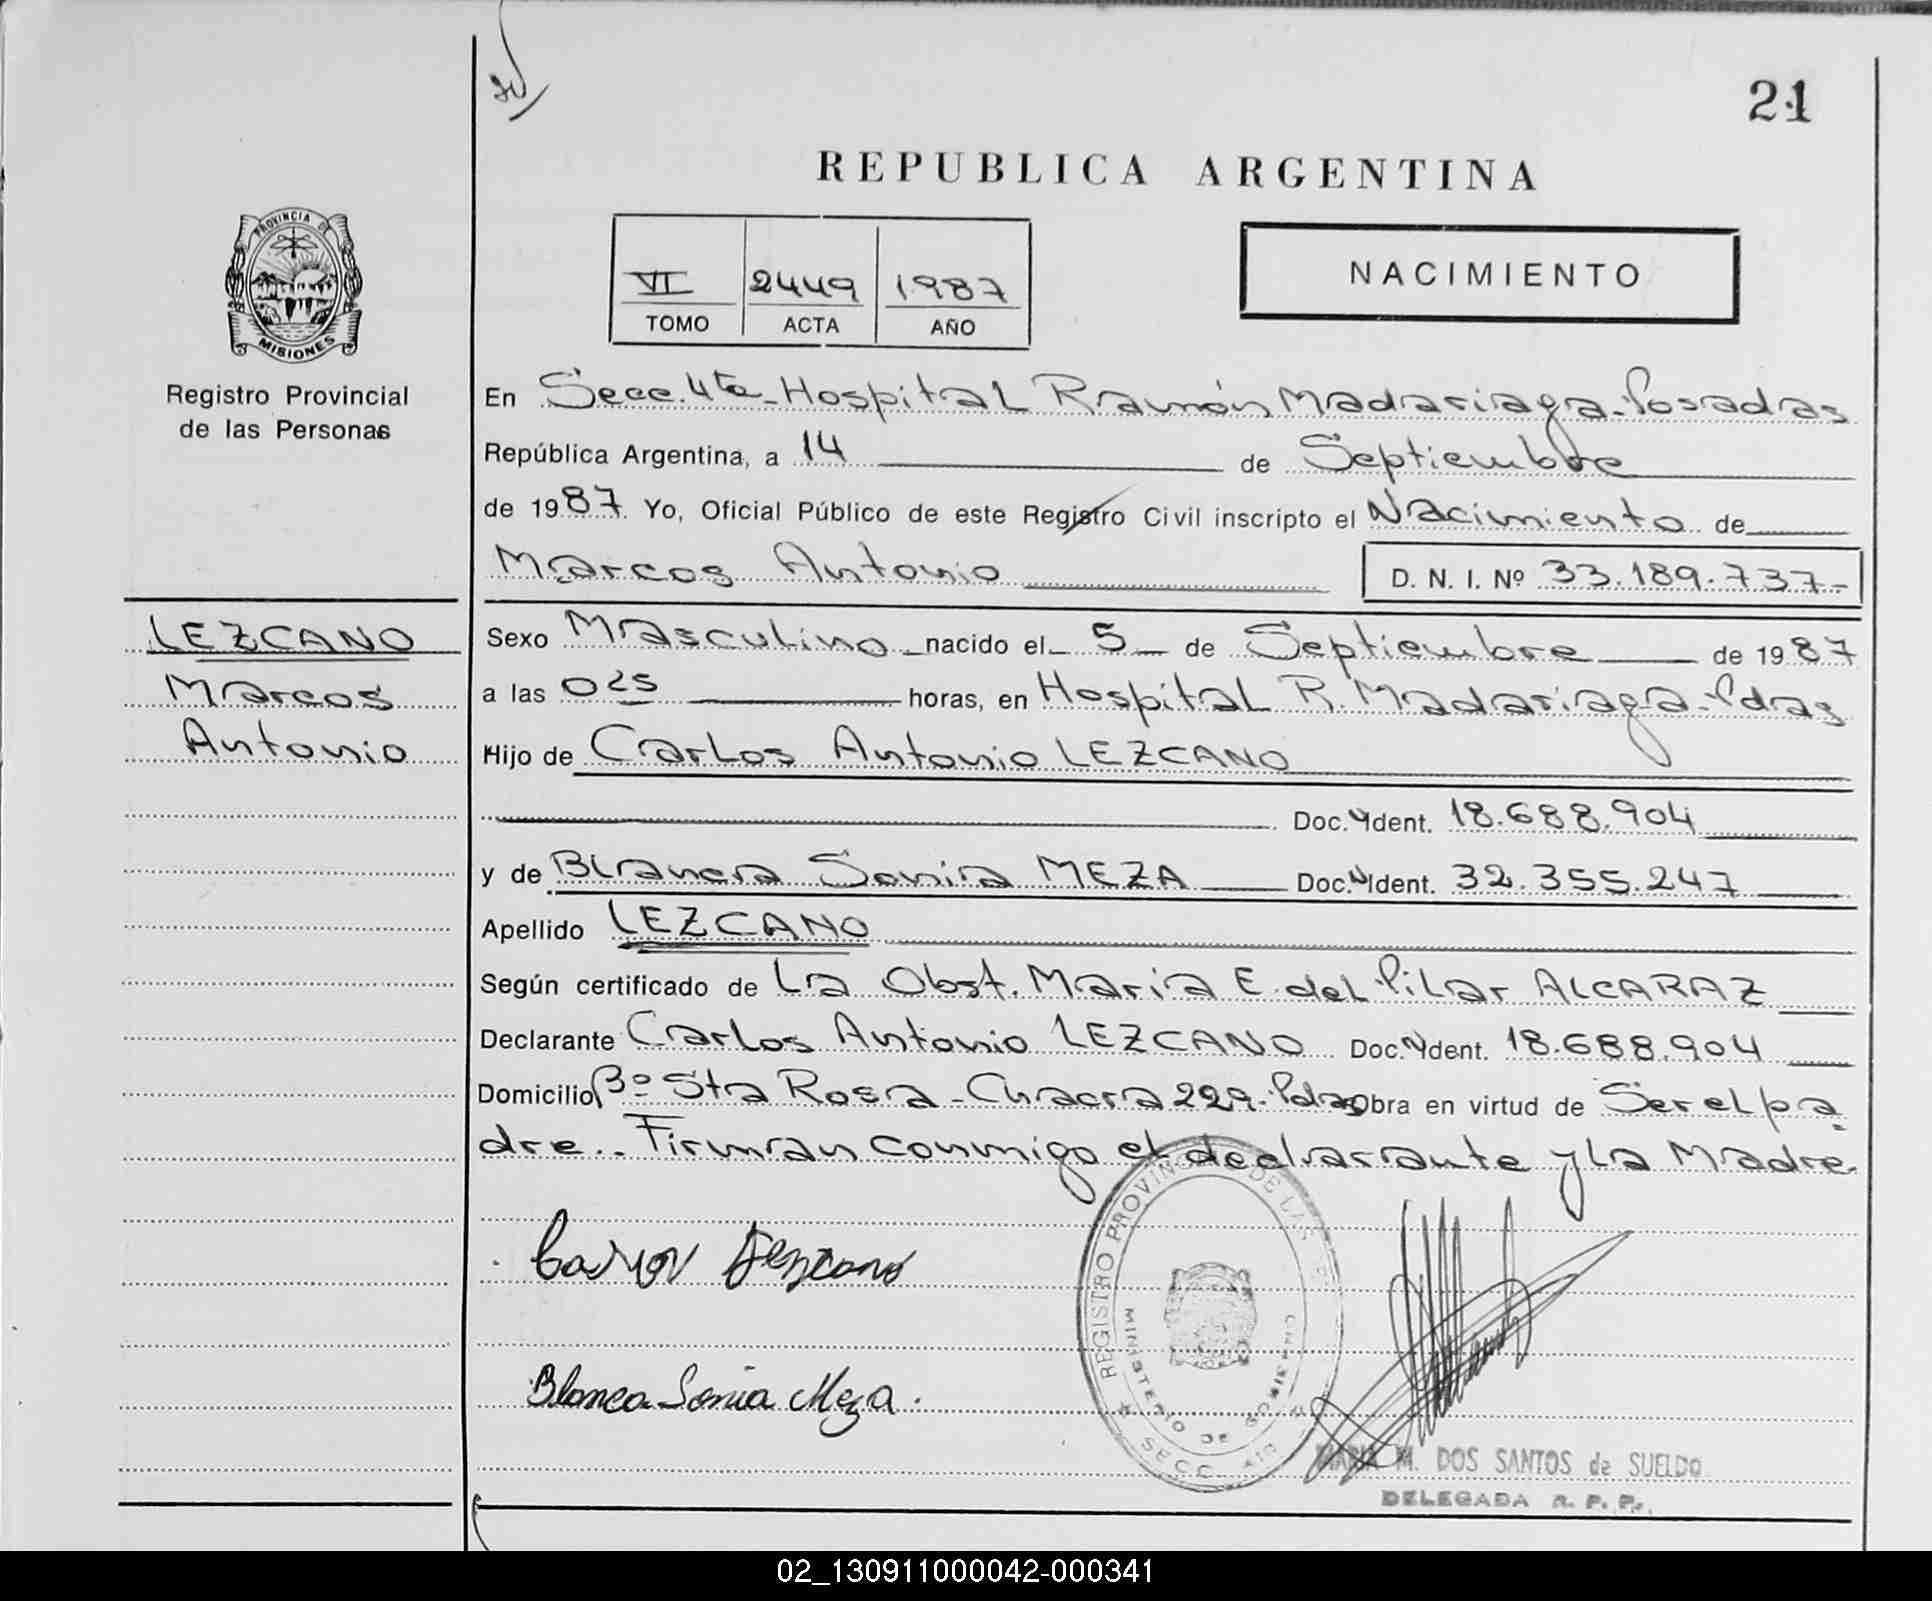 21
REPUBLICA ARGENTINA
PROVINCIA DE
MISIONES
VI 2449 1987
TOMO ACTA AÑO
NACIMIENTO
Registro Provincial
de las Personas
En Secc. 4ta - Hospital Ramón Madariaga - Posadas
República Argentina, a 14 de Septiembre
de 1987. Yo, Oficial Público de este Registro Civil inscripto el Nacimiento de
Marcos Antonio D. N. I. Nº 33.189.737-
LEZCANO
Marcos
Antonio
Sexo Masculino nacido el 5 de Septiembre de 1987
a las 0 25 horas, en Hospital R. Madariaga - Pdas
Hijo de Carlos Antonio LEZCANO
Doc. Ydent. 18.688.904
y de Blanca Sonia MEZA Doc. Ident. 32.355.247
Apellido LEZCANO
Según certificado de La Obst. Maria E. del Pilar ALCARAZ
Declarante Carlos Antonio LEZCANO Doc. Ydent. 18.688.904
Domicilio Bº Sta Rosa - Chacra 229. Pdas obra en virtud de Ser el pa
dre.. Firman conmigo el declarante y la Madre
Carlos Lezcano
Blanca Sonia Meza.
REGISTRO PROVINCIAL DE LAS
MINISTERIO DE GOBIERNO
SECC. 4ta
MARIA M. DOS SANTOS de SUELDO
DELEGADA R. P. P.
02_130911000042-000341